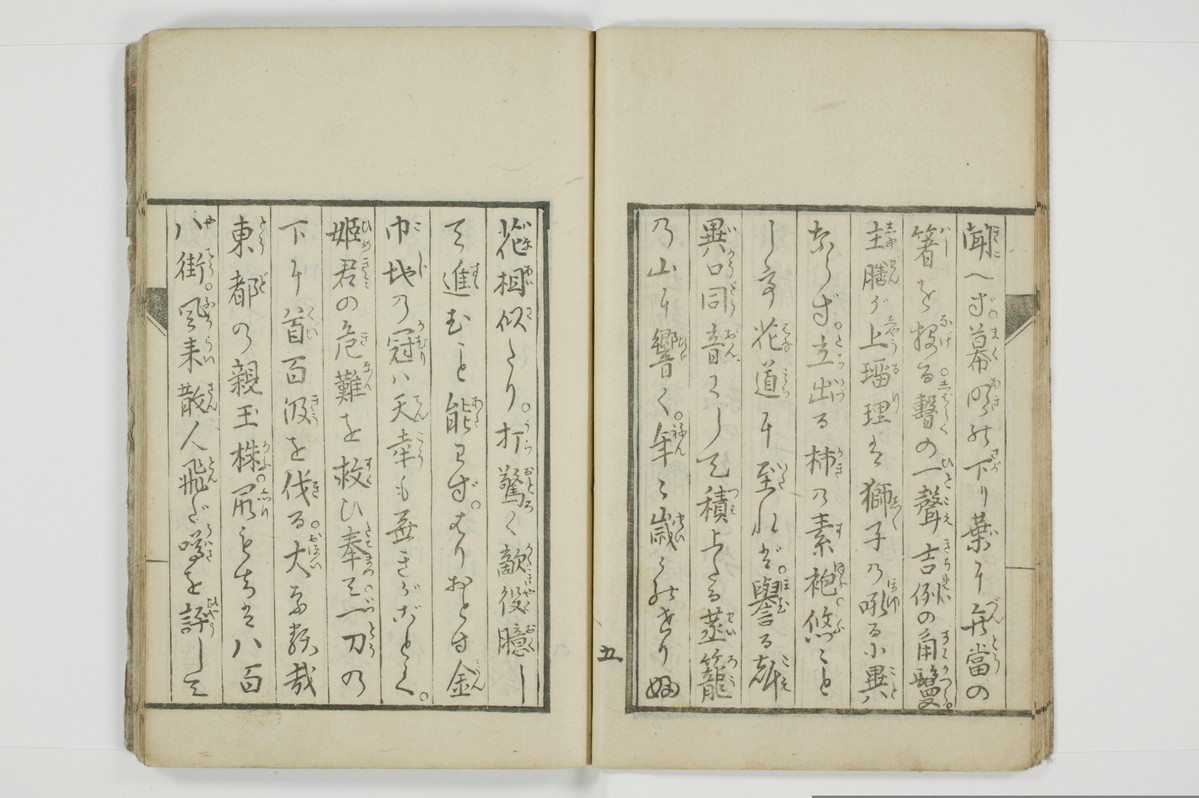 聞へず。幕明の下り葉に弁當の
箸を投る。暫の一聲吉例の角鬘
主膳が上瑠理は獅子の吼るに異
ならず。立出る柿の素袍悠々と
して花道に至れば。譽る聲
異口同音にして積上たる蒸籠
の山に響く。年々歳々
五
花相似たり。打驚く敵役臆し
て進むこと能はず。はりおとす金
巾地の冠は天幸も無きがごとく。
姫君の危難を救ひ奉る。一刀の
下に首百級を伐る。大な哉
東都の親玉株。尻もちは八百
八街。風来散人飛だ噂を評して